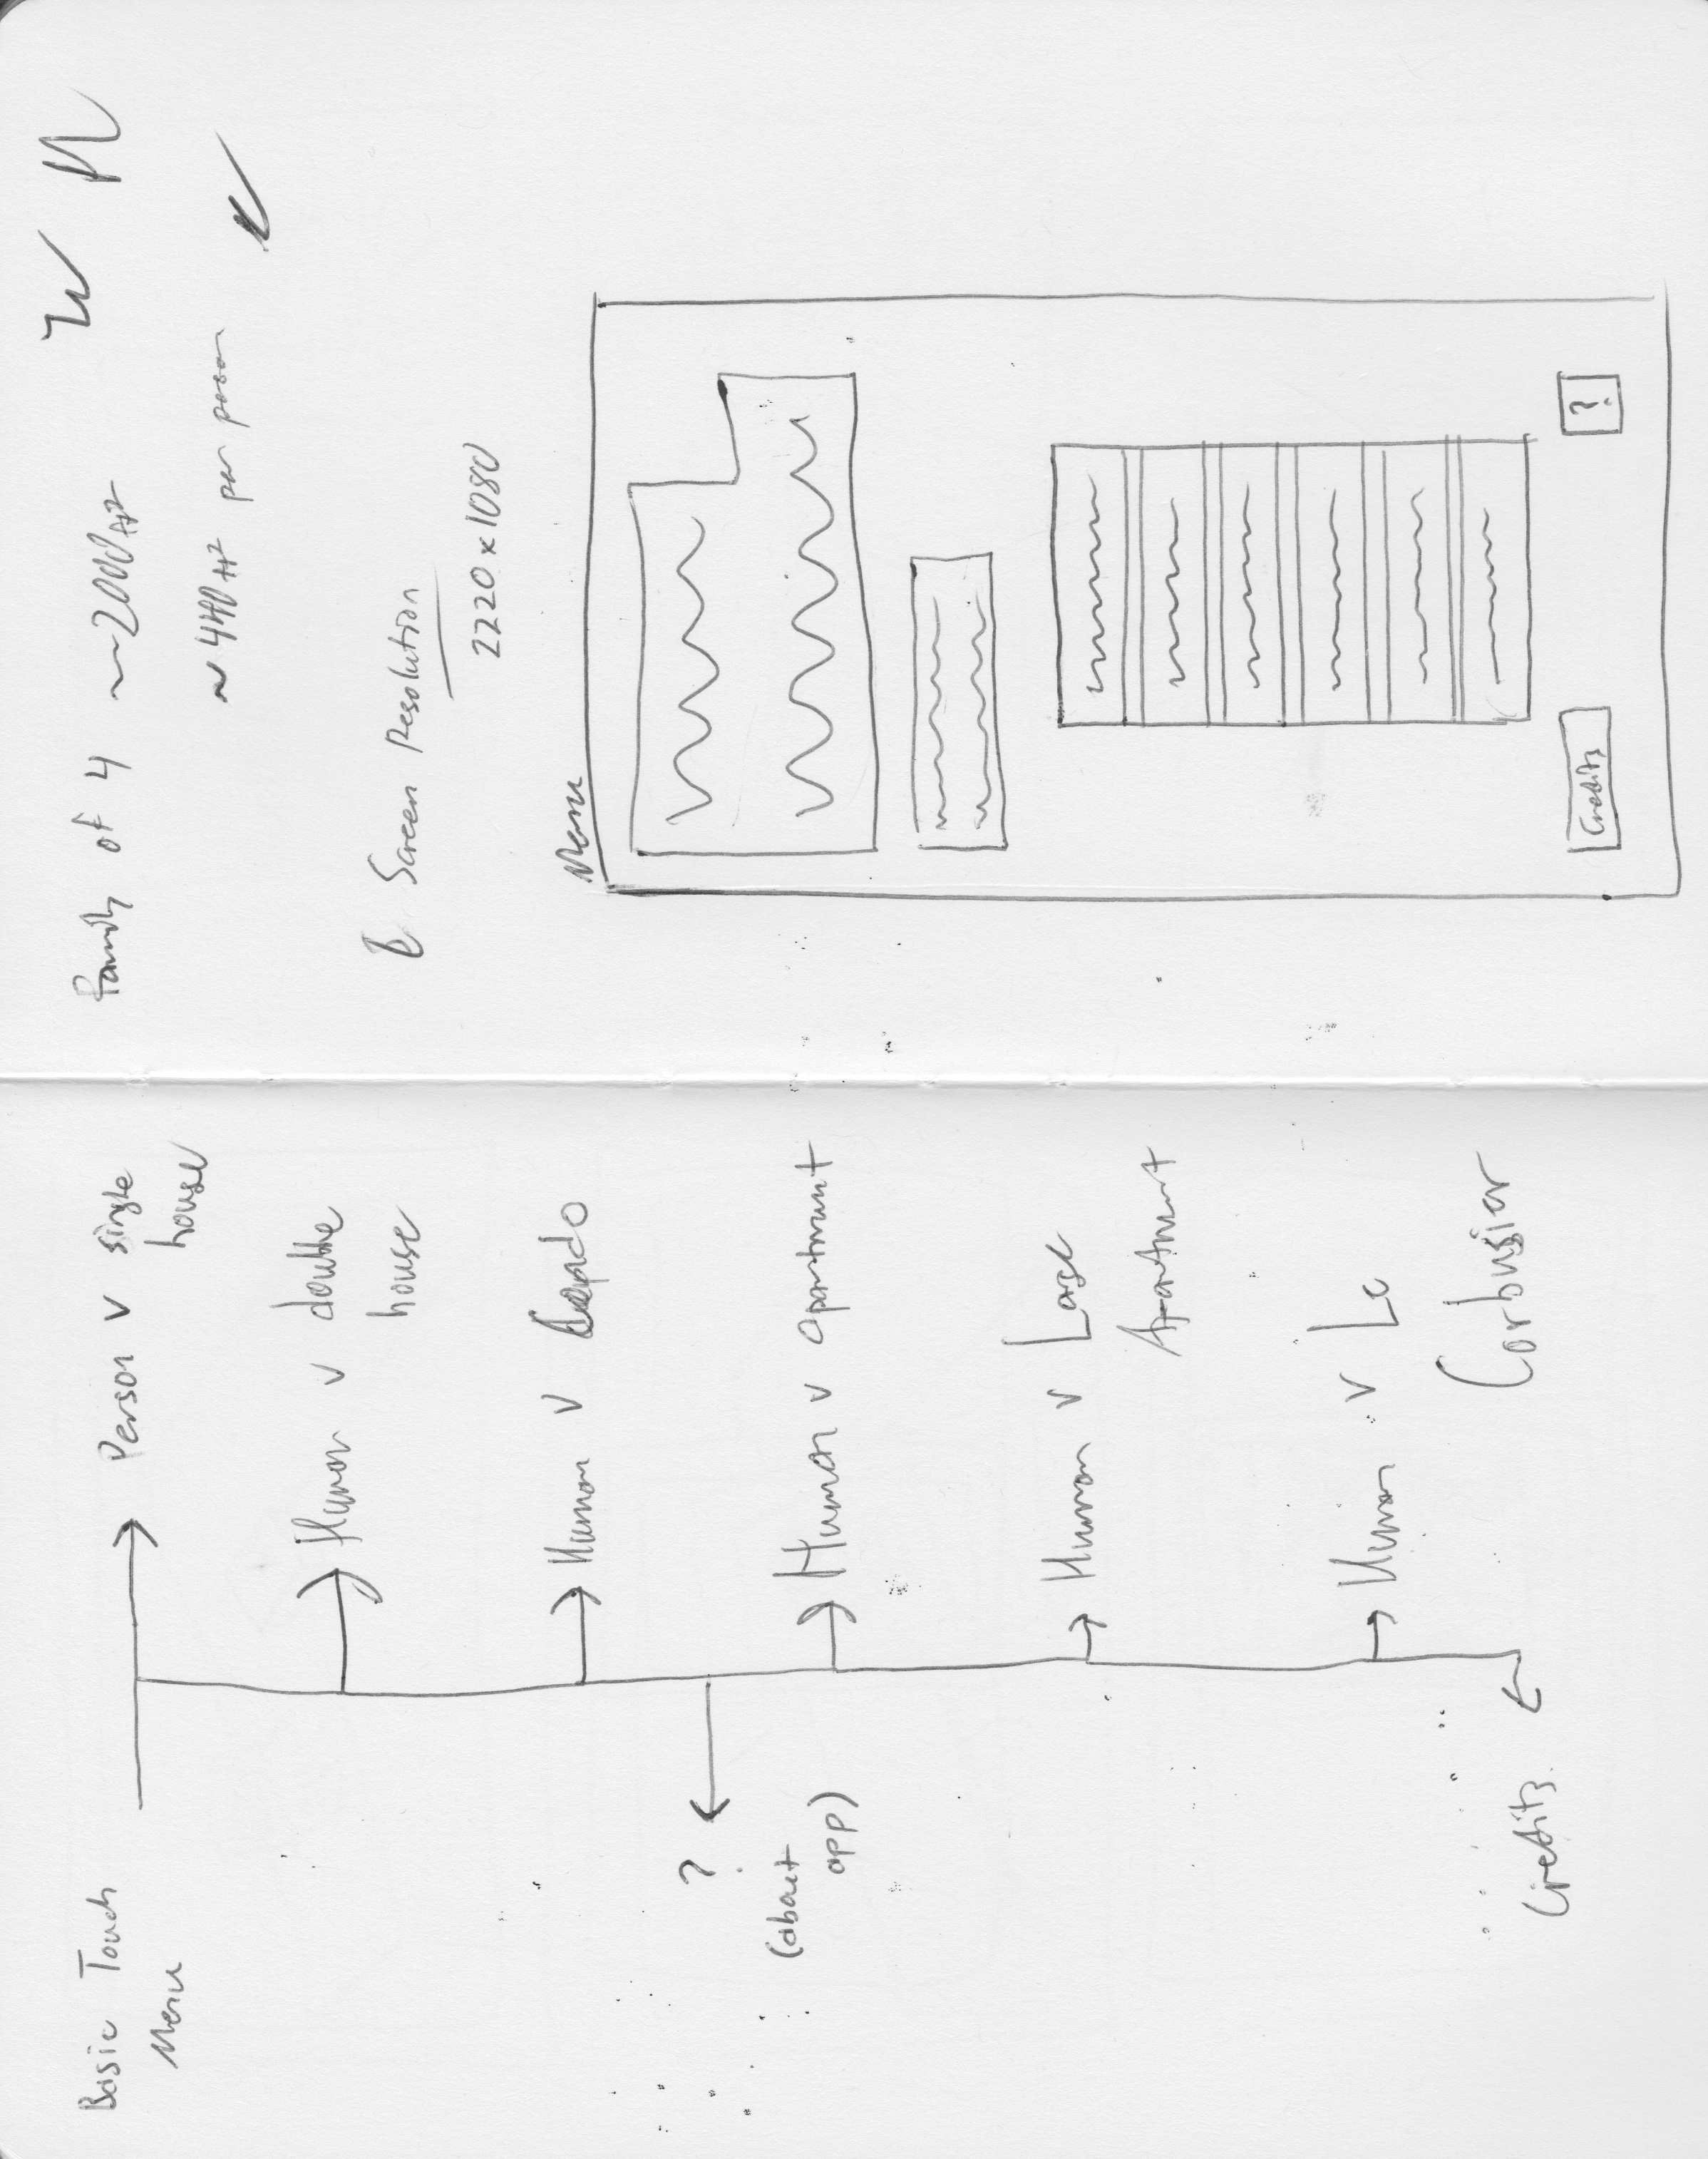 Basic Touch
Menu
Person v single
house
Human v double
house
Human v Condo
?
(about
app)
Human v apartment
Human v Large
Apartment
Human v Le
Corbusier
Credits
Family of 4 ~2000ft²
~440ft² per person
Screen Resolution
2220x1080
Menu
Credits
?